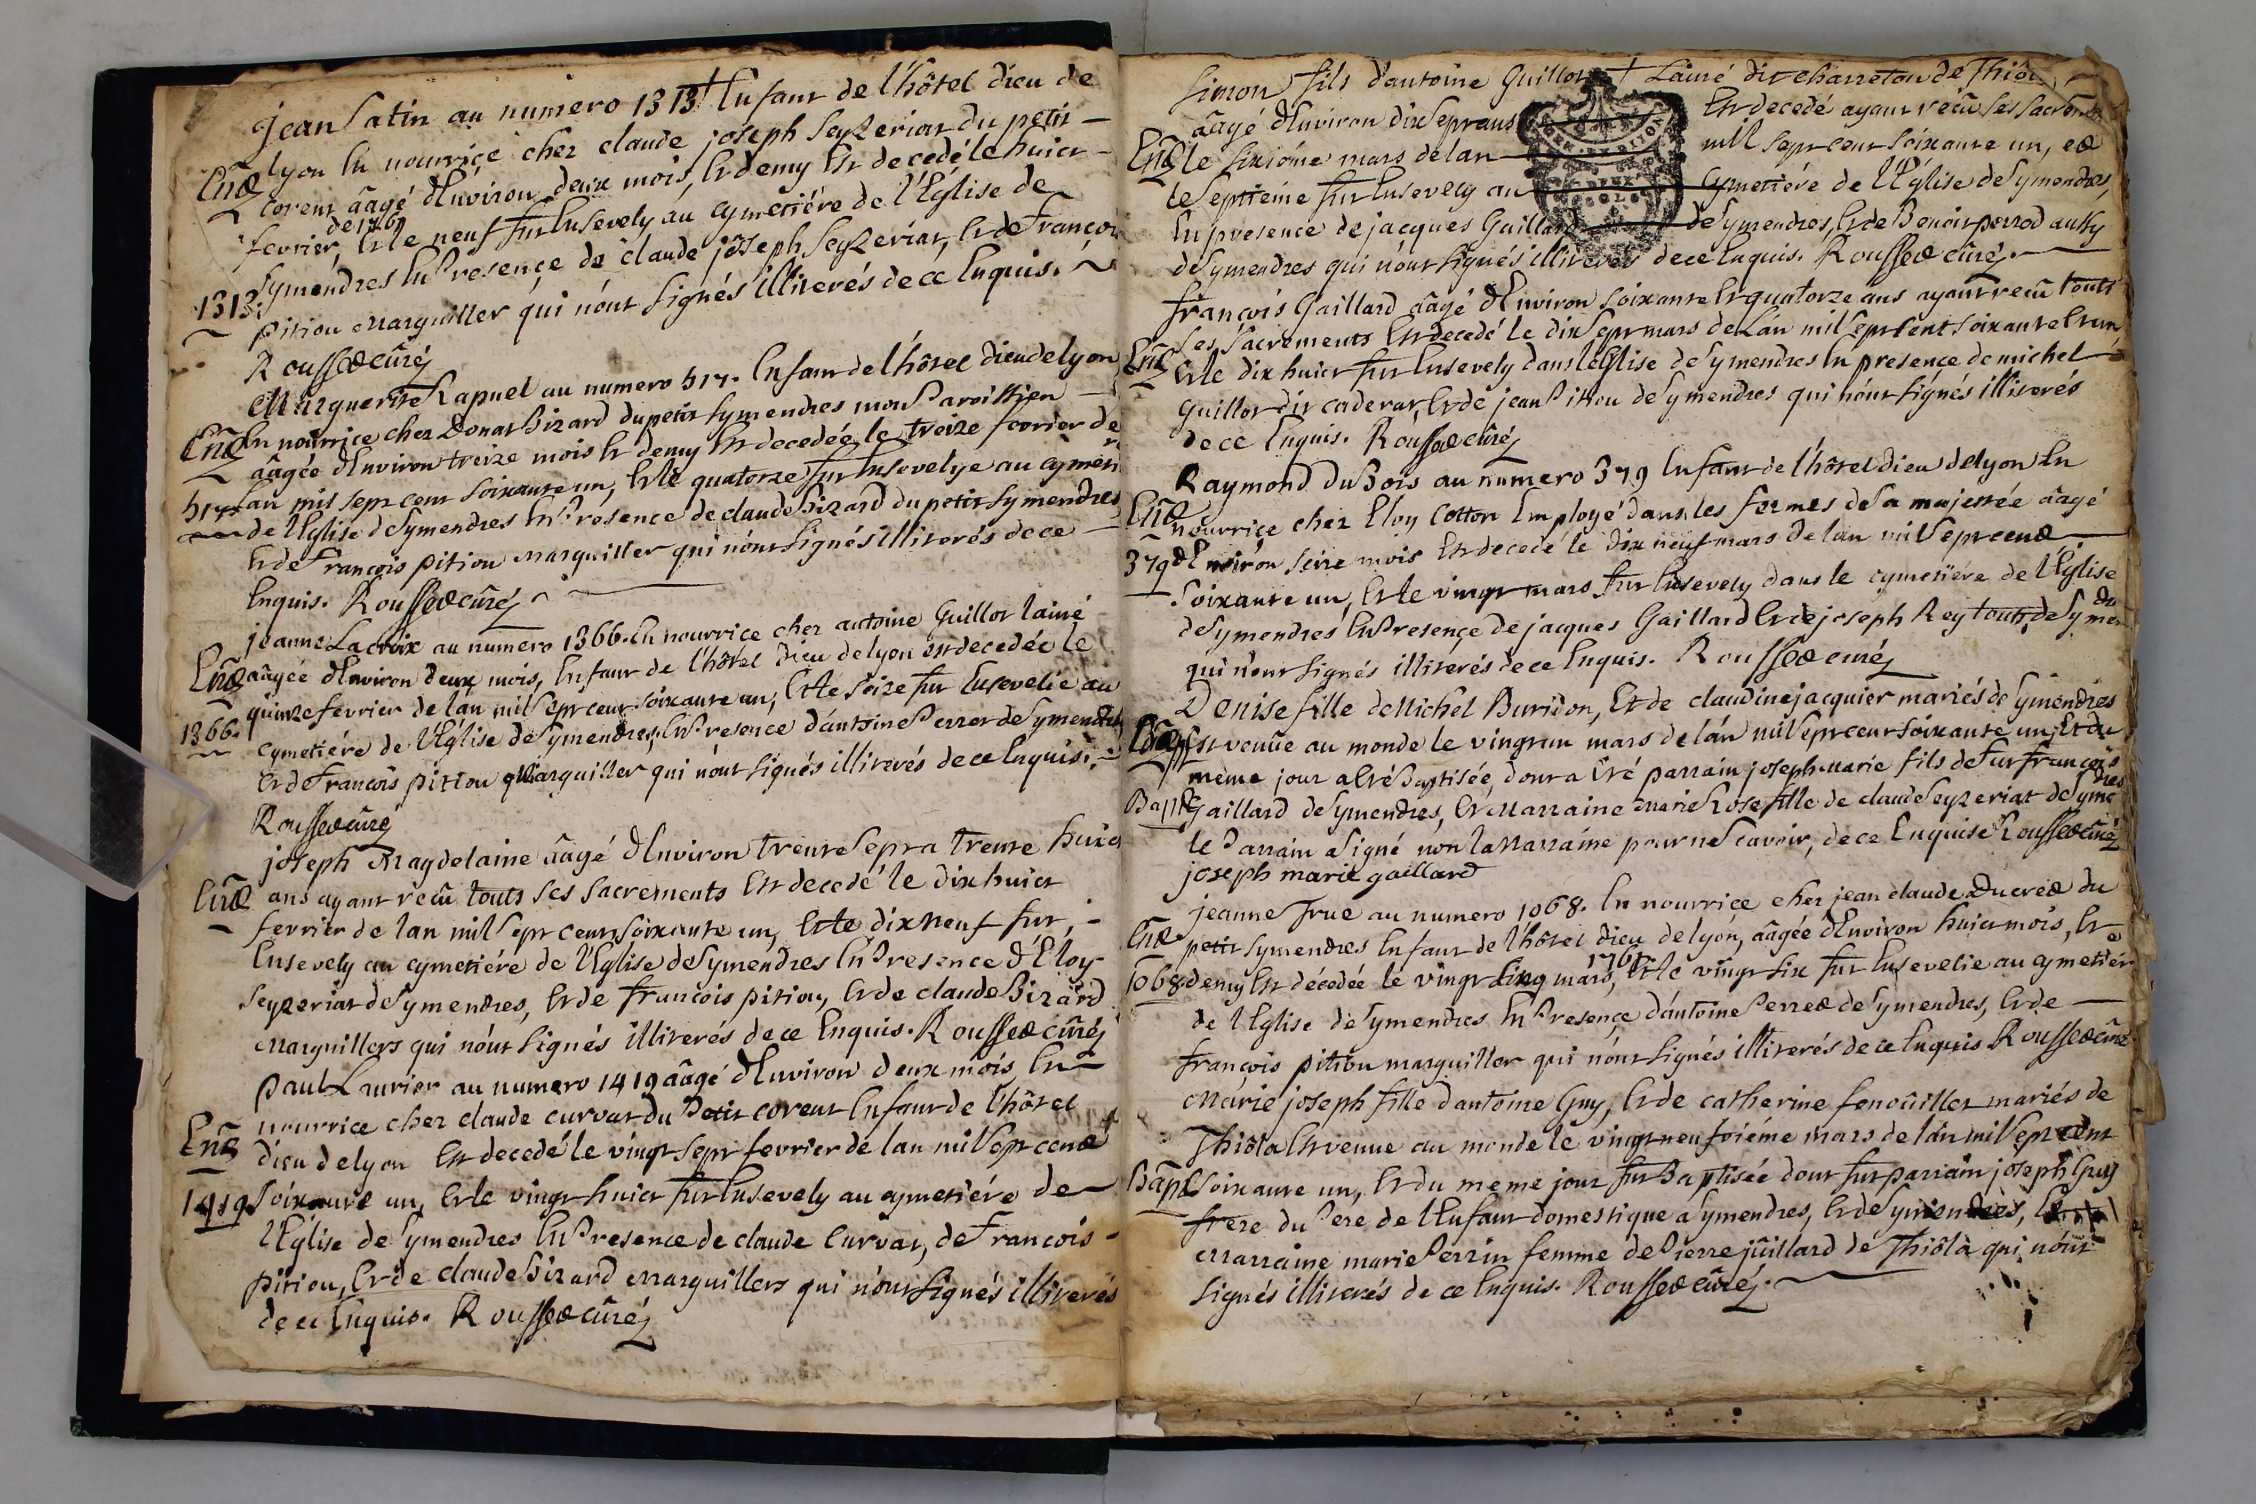 jean Satin au numero 1313 † Enfant de l'hôtel dieu de
lyon En nourriçe chez claude joseph Seyzeriat du petit
Ent corent âagé d'Environ deux mois, Et demy Est decedé le huict
de 1761
fevrier, Et le neuf fut Ensevely au cymetiére de l'Eglise de
1313. Symandres En Presençe de claude joseph Seyzeriat, Et de François
pitiou Marguiller qui n'ont signés illiterés de ce Enquis.
Rousset curé
Marguerite Rapuel au numero 517. Enfant de l'hôtel dieu de lyon
Ent En nourrice chez Donat Bizard du petit Symendres mon Paroissien
âagée d'Environ treize mois Et demy Est decedée le treize fevrier de
517 l'an mil sept cent soixante un, Et le quatorze fut Ensevelye au cymeti
de l'Eglise de Symendres En Présence de claude Bizard du petit Symendres
Et de François pitiou Marguiller qui n'ont signés illiterés de ce
Enquis. Rousset curé
jeanne Lacroix au numero 1366. En nourrice chez antoine Guillot lainé
Ent aâgée d'Environ deux mois, Enfant de l'hôtel Dieu de lyon est decedée le
quinze fevrier de l'an mil sept cent soixante un, Et le seize fut Ensevelie au
1366. cymetiére de l'Eglise de Symendres, En Presence d'antoine Perret de Symendres
Et de François pitiou Marguiller qui n'ont signés illiterés de ce Enquis.
Rousset curé
joseph Magdelaine âagé d'Environ trente Sept a trente huict
Ent ans ayant reçû touts ses sacrements Est decedé le dix huict
fevrier de l'an mil sept cent soixante un, Et le dix neuf fut
Ensevely au cymetiéré de l'Eglise de Symendres En Presence d'Eloy
Seyzeriat de Symendres, Et de François pitiou, Et de claude Bizard
Marguillers qui n'ont signés illiterés de ce Enquis. Rousset curé
paul Laurier au numero 1419 âagé d'Environ deux mois En
nourrice chez claude curvat du Petit corent Enfant de l'hôtel
Ent dieu de lyon Est decedé le vingt sept fevrier de l'an mil sept cent
1419 Soixante un, Et le vingt huict fut Ensevely au cymetiére de
l'Eglise de Symendres En Presence de claude Curvat, de François
pitiou, Et de claude Bizard Marguillers qui n'ont signés illiterés
de ce Enquis. Rousset curé
Simon fils d'antoine Guillot † Lainé dit charreton de Thiôl
âagé d'Environ dix sept ans Est decedé ayant reçû ses sacrem
Ent le sixiéme mars de l'an mil sept cent soixante un, et
le septieme fut Ensevely au Cymetiére de l'Eglise de Symendres,
En presence de jacques Gaillard de Symendres, Et de Benoit perrod aussy
de Symendres qui n'ont signés illiterés de ce Enquis. Rousset curé.
François Gaillard âagé d'Environ soixante Et quatorze ans ayant reçû touts
ses Sacrements Est decedé le dix sept mars de L'an mil sept cent soixante Et un
Ent Et le dix huict fut Ensevely dans l'Eglise de Symendres En presence de michel
Guillot dit caderat, Et de jean Pitiou de Symendres qui n'ont signés illiterés
de ce Enquis. Rousset curé
Raymond Dubois au numero 379 Enfant de l'hôtel dieu de lyon En
Ent nourriçe chez Eloy Cotton Employé dans les fermes de Sa majestée âagé
379 d'Environ seize mois Est decedé le dix neuf mars de l'an mil sept cent
Soixante un, Et le vingt mars fut Ensevely dans le cymetiére de l'Eglise
de Symendres En Presençe de jacques Gaillard Et de joseph Rey touts de Symen
dres
qui n'ont signés illiterés de ce Enquis. Rousset curé
Denise fille de Michel Buridon, Et de claudine jacquier mariés de Symendres
Bapt Est venuë au monde le vingt un mars de l'an mil sept cent soixante un, Et du
même jour a Eté Baptisée, dont a Eté parrain joseph Marie fils de fut françois
Bapt Gaillard de Symendres, Et Marraine Marie Rose fille de claude Seyzeriat de Syme
dres
le Parrain a signé non la Marraine pour ne sçavoir, de ce Enquise Rousset curé
joseph marie gaillard
jeanne True au numero 1068. En nourrice chez jean claude Ducret du
Ent petit Symendres Enfant de l'hôtel Dieu de lyon, aâgée d'Environ huict mois, Et
1761
1068 demy Est décedée le vingt cinq mars, Et le vingt six fut Ensevelie au cymetiére
de l'Eglise de Symendres En Presençe d'antoine Perret de Symendres, Et de
François pitiou marguiller qui n'ont signés illiterés de ce Enquis Rousset curé
Marie joseph fille d'antoine Guy, Et de catherine fenoüillet mariés de
Thiôla Est venue au monde le vingt neufviéme mars de l'an mil sept cent
Bapt soixante un, Et du meme jour fut Baptisée dont fut parrain joseph Guy
frere du Pere de l'Enfant domestique a Symendres, Et de Symendres, Et la
Marraine marie Perrin femme de Pierre jüillard de Thiôlà qui n'ont
signés illiterés de ce Enquis. Rousset curé.